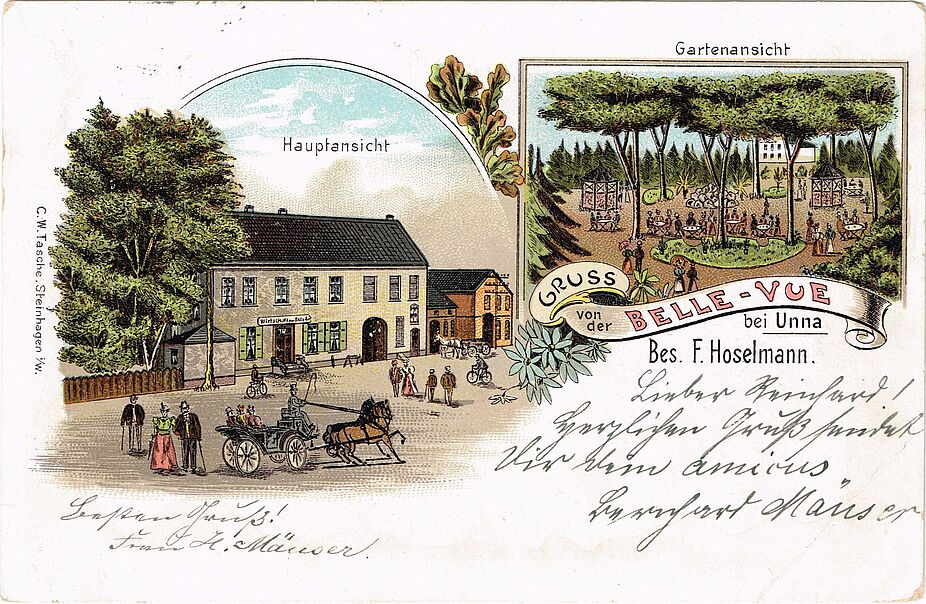 Gartenansicht
Hauptansicht
GRUSS
von der
BELLE-VUE
bei Unna
Bes. F. Hoselmann.
C. W. Tasche, Steinhagen i/W.
Lieber Reinhard!
Herzlichen Gruß sendet
Dir dein amicus
Bernhard Mäuser
Besten Gruß!
Frau H. Mäuser.